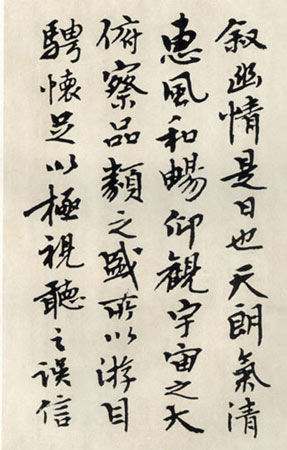 叙幽情是日也天朗氣清
惠風和暢仰觀宇宙之大
俯察品類之盛所以游目
騁懷足以極視聽之誤信